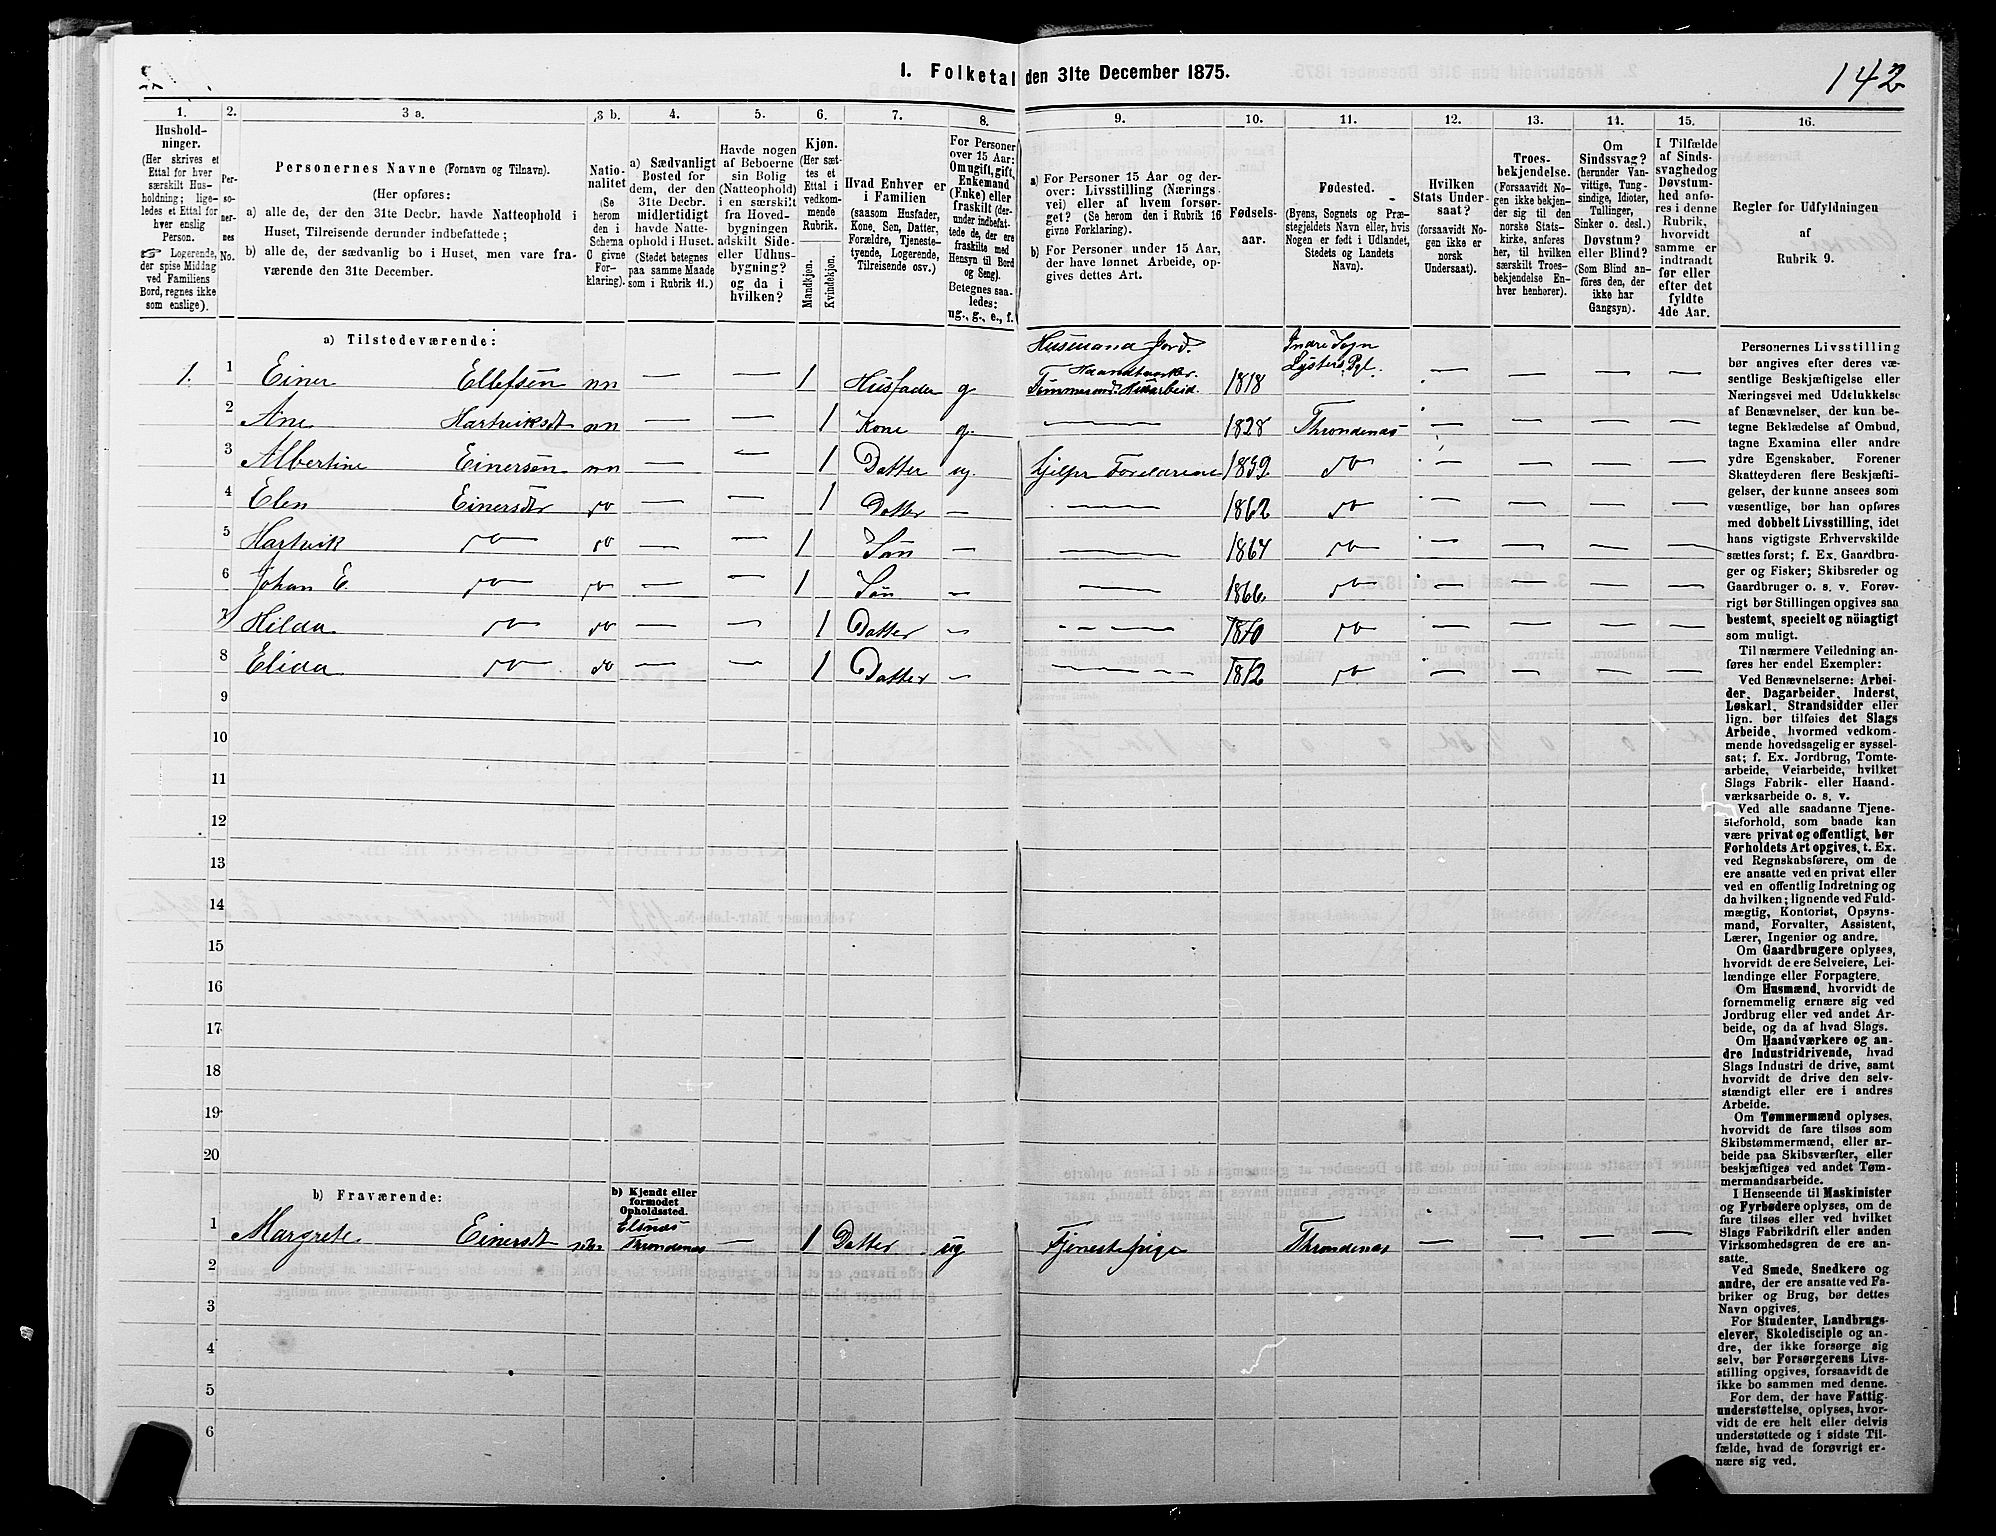 1. Folketal den 31te December 1875.
142
1.
Hushold-
ninger.
(Her skrives et
Ettal for hver
særskilt Hus-
holdning; lige-
ledes et Ettal for
hver enslig
Person.
☞ Logerende,
der spise Middag
ved Familiens
Bord, regnes ikke
som enslige).
2.
Per-
so-
ner-
nes
No.
3 a.
Personernes Navne (Fornavn og Tilnavn).
(Her opføres:
a) alle de, der den 31te Decbr. havde Natteophold i
Huset, Tilreisende derunder indbefattede;
b) alle de, der sædvanlig bo i Huset, men vare fra-
værende den 31te December.
3 b.
Natio-
nalitet
(Se
herom
den i
Schema
O givne
For-
klaring).
4.
a) Sædvanligt
Bosted for
dem, der den
31te Decbr.
midlertidigt
havde Natte-
ophold i Huset.
(Stedet betegnes
paa samme Maade
som i Rubrik 11.)
5.
Havde nogen
af Beboerne
sin Bolig
(Natteophold)
i en særskilt
fra Hoved-
bygningen
adskilt Side-
eller Udhus-
bygning?
og da i
hvilken?
6.
Kjøn.
(Her sæt-
tes et
Ettal i
vedkom-
mende
Rubrik.
Mandkjøn.
Kvindekjøn.
7.
Hvad Enhver er
i Familien
(saasom Husfader,
Kone, Søn, Datter,
Forældre, Tjeneste-
tyende, Logerende,
Tilreisende osv.)
8.
For Personer
over 15 Aar:
Om ugift, gift,
Enkemand
(Enke) eller
fraskilt (der-
under indbefat-
tede de, der ere
fraskilte med
Hensyn til Bord
og Seng).
Betegnes saa-
ledes:
ug., g., e., f.
9.
a) For Personer 15 Aar og der-
over: Livsstilling (Nærings-
vei) eller af hvem forsør-
get? (Se herom den i Rubrik 16
givne Forklaring).
b) For Personer under 15 Aar,
der have lønnet Arbeide, op-
gives dettes Art.
10.
Fødsels-
aar.
11.
Fødested.
(Byens, Sognets og Præ-
stegjeldets Navn eller, hvis
Nogen er født i Udlandet,
Stedets og Landets
Navn).
12.
Hvilken
Stats Under-
saat?
(forsaavidt No-
gen ikke er
norsk
Undersaat).
13.
Troes-
bekjendelse.
(Forsaavidt No-
gen ikke bekjen-
der sig til den
norske Stats-
kirke, anføres
her, til hvilken
særskilt Troes-
bekjendelse En-
hver henhører).
14.
Om
Sindssvag?
(herunder Van-
vittige, Tung-
sindige, Idioter,
Tullinger,
Sinker o. desl.)
Døvstum?
eller Blind?
(Som Blind an-
føres den, der
ikke har
Gangsyn).
15.
I Tilfælde
af Sinds-
svaghed og
Døvstum-
hed anfø-
res i denne
Rubrik.
hvorvidt
samme er
indtraadt
før eller
efter det
fyldte
4de Aar.
16.
Regler for Udfyldningen
af
Rubrik 9.
a) Tilstedeværende:
Husmand Jord. Indre Sogn
Haandtverker Lysters Pgl.
1. 1 Einer Ellefsen nn — — 1 Husfader g 1818 — — — —
2 Ane Hartviksdt nn — — 1 Kone g. — 1828 Throndenæs — — — —
3 Albertine Einersen nn — — 1 Datter ug Hjelper Forældrene 1859 do — — — —
4 Elen Einersdtr do — — 1 Datter — — 1862 do — — — —
5 Hartvik do do — — 1 Søn — — 1864 do — — — —
6 Johan E. do do — — 1 Søn — — 1866 do — — — —
7 Hilda do do — — 1 Datter — — 1870 do — — — —
8 Elida do do — — 1 Datter — — 1872 do — — — —
9
10
11
12
13
14
15
16
17
18
19
20
b) Fraværende:
b) Kjendt eller
formodet
Opholdssted.
Elsnæs
1 Margrete Einersdt Throndenæs — 1 Datter ug Tjenestepige Throndenæs — — — —
2
3
4
5
6
Personernes Livsstilling
bør angives efter deres væ-
sentlige Beskjæftigelse eller
Næringsvei med Udelukkelse
af Benævnelser, der kun be-
tegne Beklædelse af Ombud,
tagne Examina eller andre
ydre Egenskaber. Forener
Skatteyderen flere Beskjæfti-
gelser, der kunne ansees som
væsentlige, bør han opføres
med dobbelt Livsstilling, idet
hans vigtigste Erhvervskilde
sættes først; f. Ex. Gaardbru-
ger og Fisker; Skibsreder og
Gaardbruger o. s. v. Forøv-
rigt bør Stillingen opgives saa
bestemt, specielt og nöiagtigt
som muligt.
Til nærmere Veiledning an-
føres her endel Exempler:
Ved Benævnelserne: Arbei-
der, Dagarbeider, Inderst,
Løskarl, Strandsidder eller
lign. bør tilføies det Slags
Arbeide, hvormed vedkom-
mende hovedsagelig er syssel-
sat; f. Ex. Jordbrug, Tomte-
arbeide, Veiarbeide, hvilket
Slags Fabrik- eller Haand-
værksarbeide o. s. v.
Ved alle saadanne Tjene-
steforhold, som baade kan
være privat og offentligt, bør
Forholdets Art opgives, t. Ex.
ved Regnskabsførere, om de
ere ansatte ved en privat eller
ved en offentlig Indretning og
da hvilken; lignende ved Fuld-
mægtig, Kontorist, Opsyns-
mand, Forvalter, Assistent,
Lærer, Ingeniør og andre.
Om Gaardbrugere oplyses,
hvorvidt de ere Selveiere, Lei-
lændinge eller Forpagtere.
Om Husmænd, hvorvidt de
fornemmelig ernære sig ved
Jordbrug eller ved andet Ar-
beide, og da af hvad Slags.
Om Haandværkere og an-
dre Industridrivende, hvad
Slags Industri de drive, samt
hvorvidt de drive den selv-
stændigt eller ere i andres
Arbeide.
Om Tømmermænd oplyses,
hvorvidt de fare tilsøs som
Skibstømmermænd, eller ar-
beide paa Skibsværfter, eller
beskjæftiges ved andet Tøm-
mermandsarbeide.
I Henseende til Maskinister
og Fyrbødere oplyses, om de
fare tilsøs eller ved hvilket
Slags Fabrikdrift eller anden
Virksomhedsgren de ere an-
satte.
Ved Smede, Snedkere og
andre, der ere ansatte ved Fa-
briker og Brug, bør dettes
Navn opgives.
For Studenter, Landbrugs-
elever, Skoledisciple og an-
dre, der ikke forsørge sig
selv, bør Forsørgerens Livs-
stilling opgives, forsaavidt de
ikke bo sammen med denne.
For dem, der have Fattig-
understøttelse, oplyses, hvor-
vidt de ere helt eller delvis
understøttede og i sidste Til-
fælde, hvad de forøvrigt er-
nære sig ved.